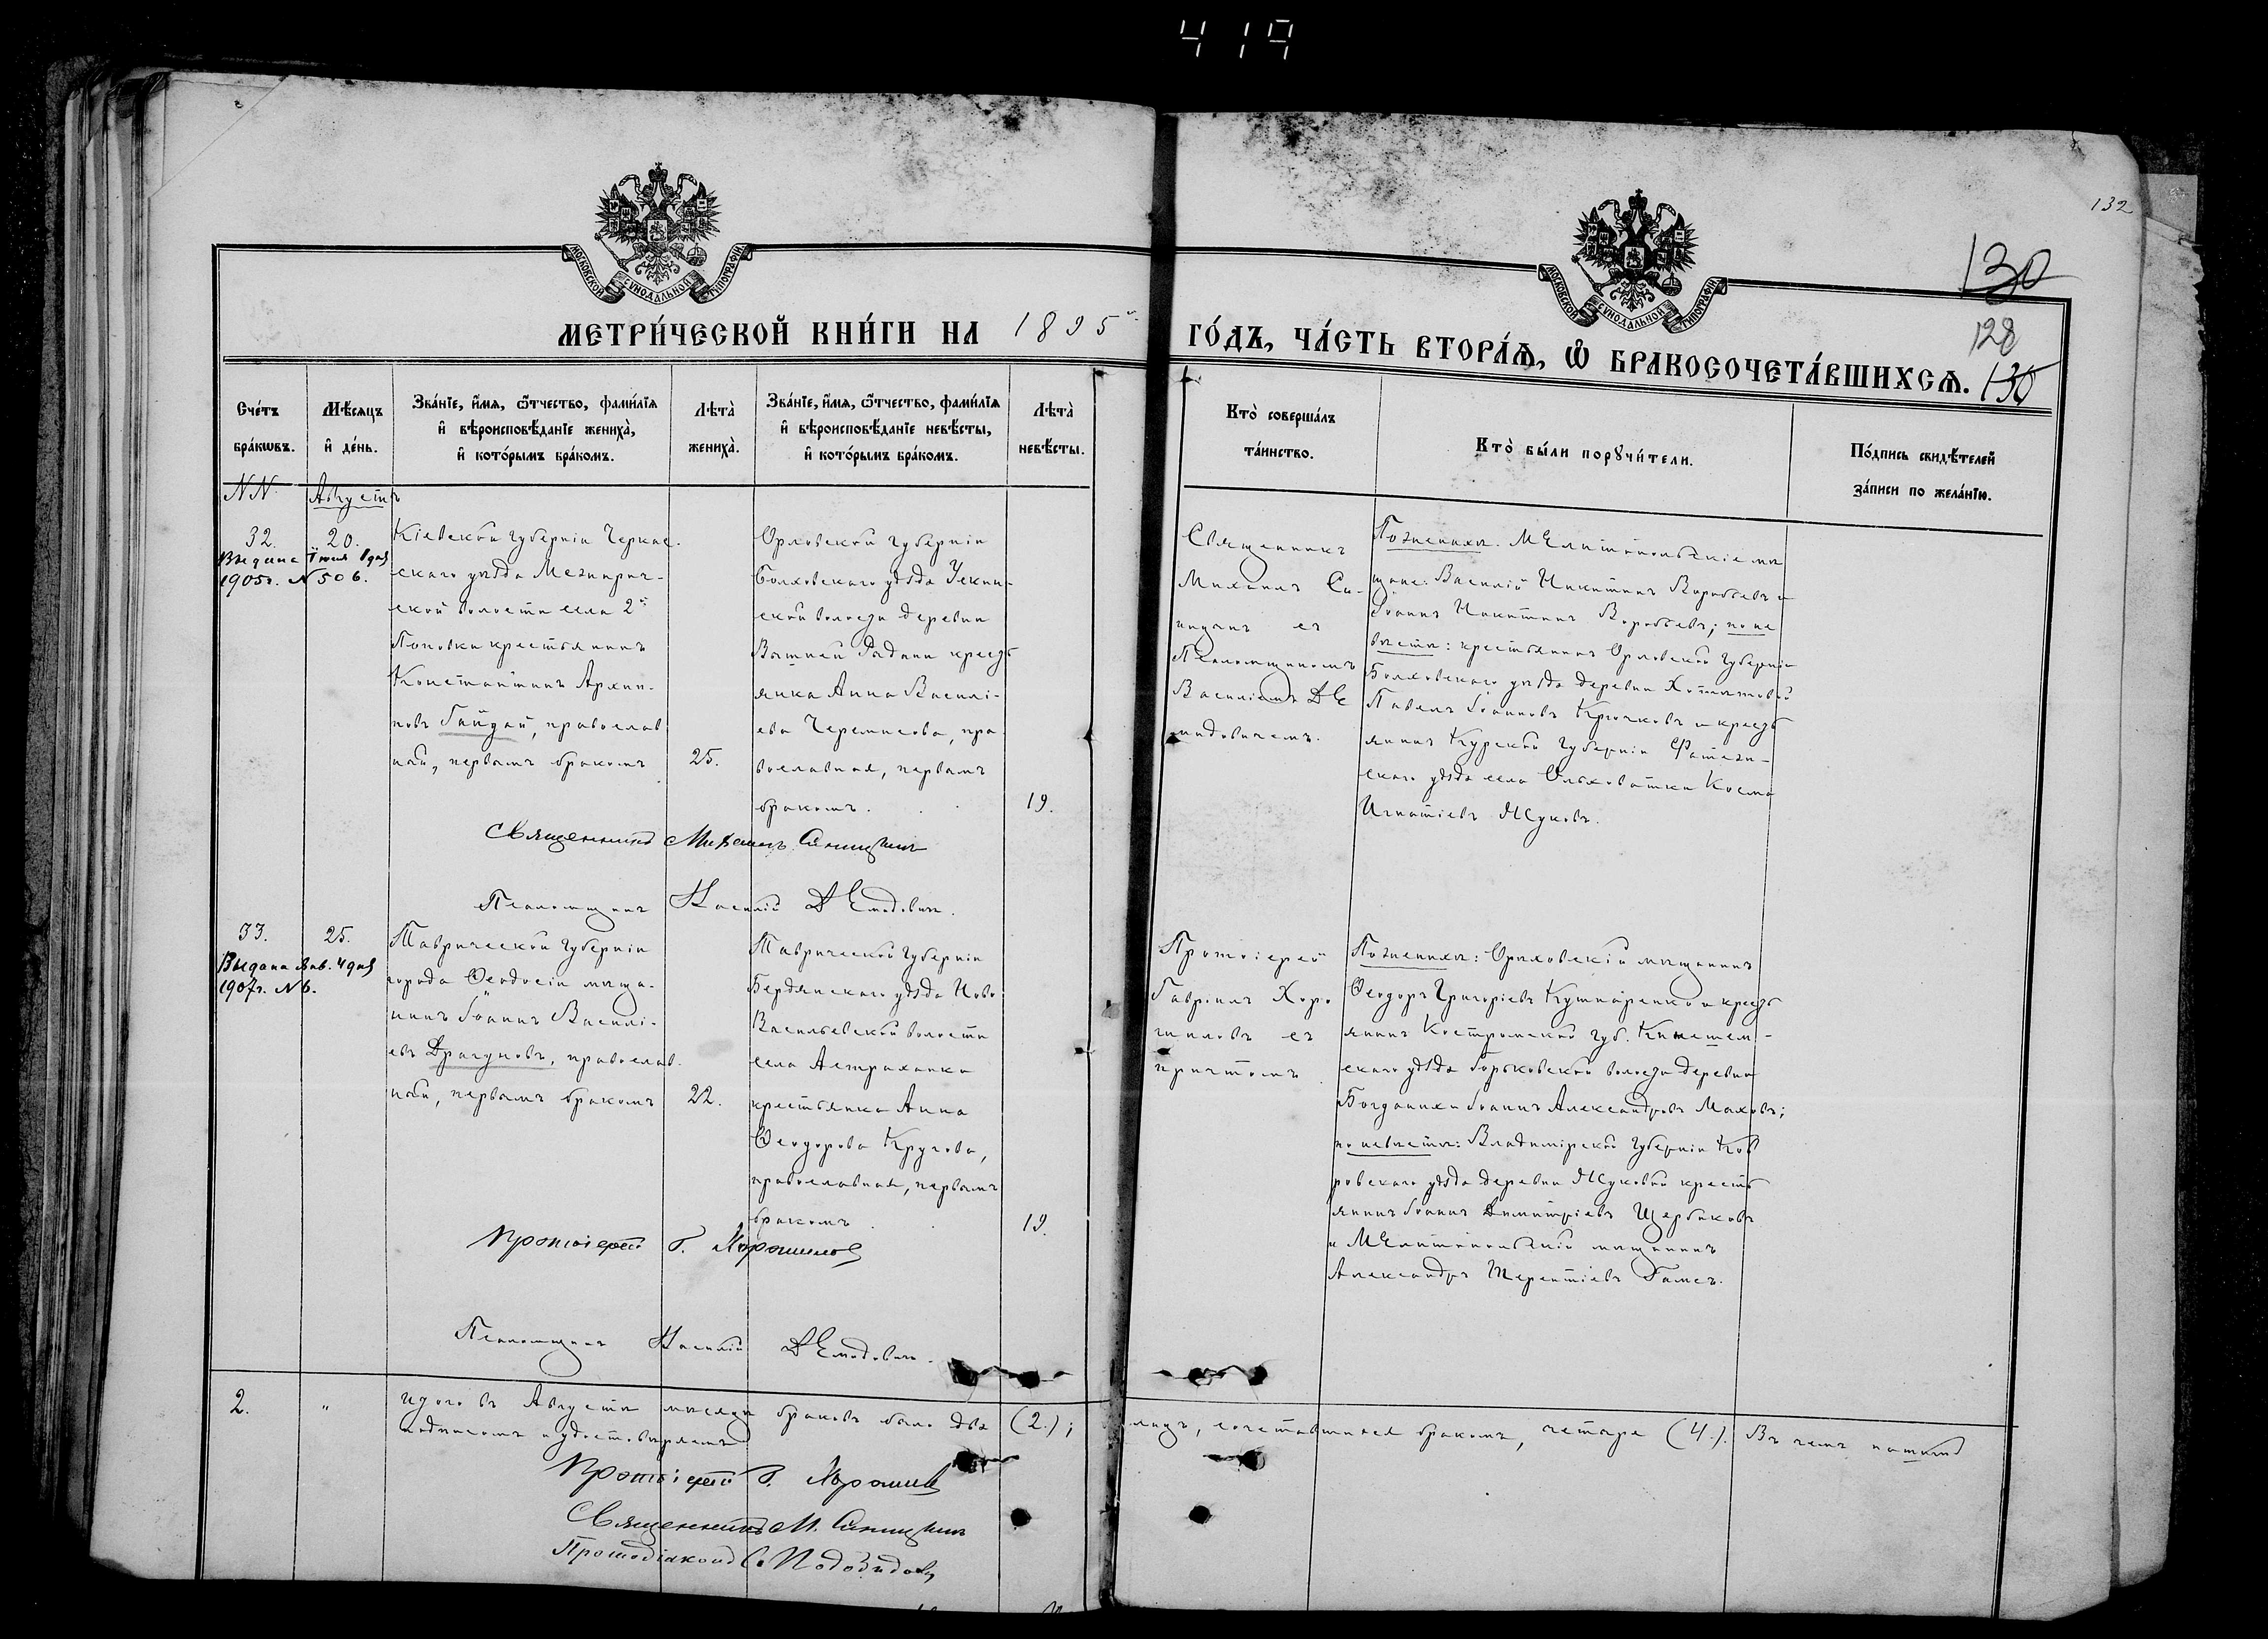 419
132
130
128
130
МОСКОВСКОЙ СѴНОДАЛЬНОЙ ТИПОГРАФІИ
МОСКОВСКОЙ СѴНОДАЛЬНОЙ ТИПОГРАФІИ
МЕТРИ́ЧЕСКОЙ КНИ́ГИ НА 1895й ГО́ДЪ, ЧА́СТЬ ВТОРА́Ѧ, Ѽ БРАКОСОЧЕТА́ВШИХСѦ.
Сче́тъ
бра́кѡвъ.
Мѣ́сѧцъ
и҆ де́нь.
Зва́нїе, и҆́мѧ, ѻ҆́тчество, фами́лїѧ
и҆ вѣроисповѣ́данїе жениха̀,
и҆ кото́рымъ бра́комъ.
Лѣта̀
жениха̀.
Зва́нїе, и҆́мѧ, ѻ҆́тчество, фами́лїѧ
и҆ вѣроисповѣ́данїе невѣ́сты,
и҆ кото́рымъ бра́комъ.
Лѣта̀
невѣ́сты.
Кто̀ соверша́лъ
та́инство.
Кто̀ бы́ли порꙋчи́тели.
По́дпись свидѣ́телей
за́писи по жела́нїю.
NN.
Августъ
32.
20.
Выдано Іюля 1 дня
1905г. N 506.
Кіевской губерніи Черкас-
скаго уѣзда Межирич-
ской волости села 2й
Поповки крестьянинъ
Константинъ Архип-
повъ Гайдай, православ
ный, первымъ бракомъ
25.
Орловской губерніи
Болховскаго уѣзда
ской волости деревни
крест
янка Анна Василі-
ева Черемисова, пра
вославная, первымъ
бракомъ.
19.
Священникъ
Михаилъ Си-
ницынъ съ
Псаломщикомъ
Василіемъ Де
мидовичемъ.
По женихѣ: Мелитопольскіе мѣ
щане: Василій Никитинъ Воробьевъ и
Іоаннъ Никитинъ Воробьевъ; по не
вѣстѣ: крестьянинъ Орловской губерніи
Болховскаго уѣзда деревни Хотынтовой
Павелъ Іоанновъ Крючковъ и крест
янинъ Курской губерніи Фатеж-
скаго уѣзда села Ольховатки Косма
Игнатіевъ Жуковъ.
Священникъ Михаилъ Синицынъ
Псаломщикъ Василій Демидовичъ.
33.
25.
Выдана Янв. 4 дня
1907г. N 6.
Таврической губерніи
города Ѳеодосіи мѣща-
нинъ Іоаннъ Василі-
евъ Драгуновъ, православ
ный, первымъ бракомъ
22.
Таврической губерніи
Бердянскаго уѣзда Ново
Васильевской волости
села Астраханки
крестьянка Анна
Ѳеодорова Кругова,
православная, первымъ
бракомъ
19.
Протоіерей
Гавріилъ Хоро
шиловъ съ
причтомъ
По женихѣ: Орѣховскій мѣщанинъ
Ѳеодоръ Григоріевъ Кушнаренко и крест
янинъ Костромской губ. Кинешем-
скаго уѣзда Горковской волости деревни
Богданихи Іоаннъ Александровъ Маховъ;
по невѣстѣ: Владимірской губерніи Ков
ровскаго уѣзда деревни Жуковой кресть
янинъ Іоаннъ Димитріевъ Щербаковъ
и Мелитопольскій мѣщанинъ
Александръ Терентіевъ
Протоіерей Г. Хорошиловъ
Псаломщикъ Василій Демидовичъ.
2. " Итого въ Августѣ мѣсяцѣ браковъ было два (2.); лицъ, сочетавшихся бракомъ, четыре (4.). Въ чемъ нашимъ
подписомъ и удостовѣряемъ
Протоіерей Г. Хорошиловъ
Священникъ М. Синицынъ
Протодіаконъ С. Подовидовъ